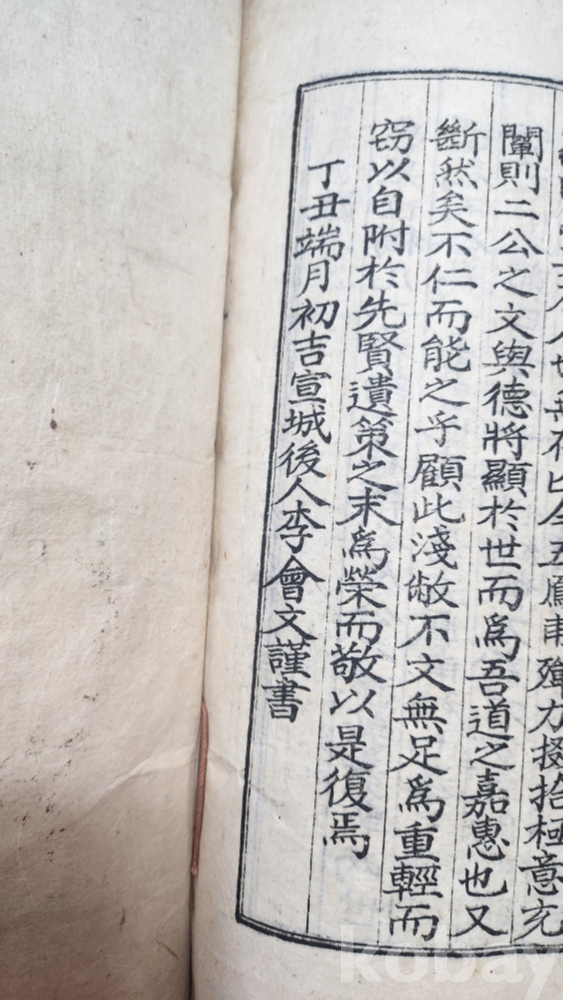 今五鳳甫殫力掇拾極意充
闡則二公之文與德將顯於世而爲吾道之嘉惠也又
斷然矣不仁而能之乎顧此淺敝不文無足爲重輕而
窃以自附於先賢遺策之末爲榮而敬以是復焉
丁丑端月初吉宣城後人李會文謹書
kobay